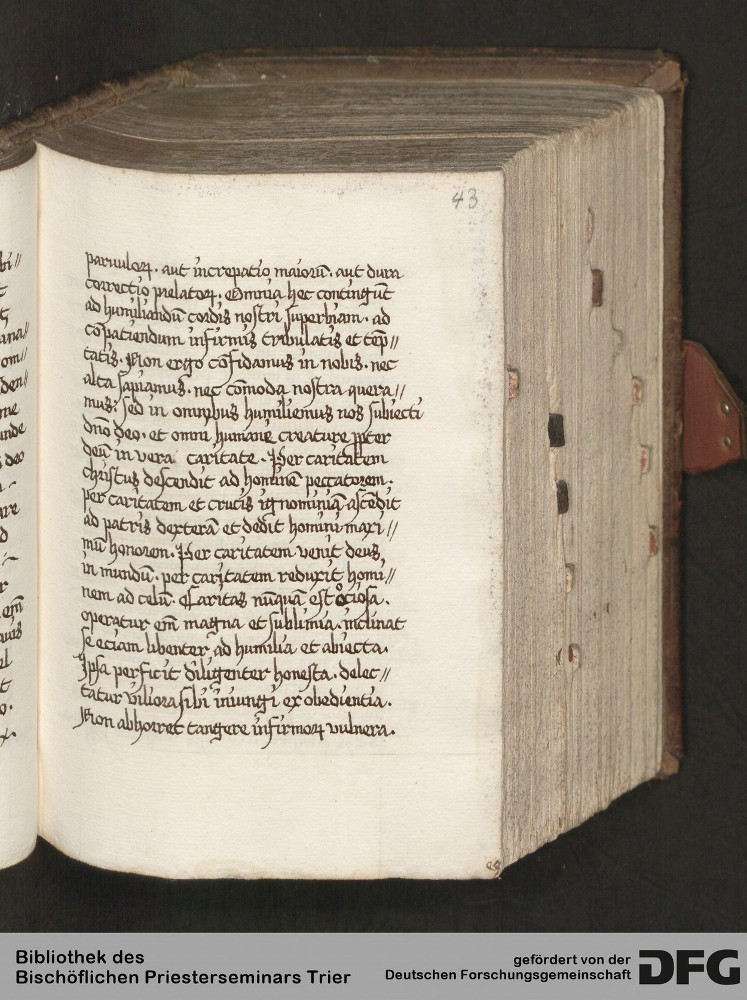 43
paruuloꝝ. aut increpatio maioꝝ. aut dura
correctio prelatoꝝ. Omnia hec contingūt
ad humiliandū cordis nostri superbiam. ad
cōpatiendum infirmis tribulatis et tēp//
tatis. Non ergo cōfidamus in nobis. nec
alta sapiamus. nec cōmoda nostra quera//
mus: sed in omnibus humiliemus nos subiecti
dn̄o deo. et omni humane creature ꝓpter
deū in vera caritate. Per caritatem
christus descendit ad hominē peccatorem.
per caritatem et crucis ignominiā ascēdit
ad patris dexterā et dedit homini maxi//
mū honorem. Per caritatem venit deus
in mundū. per caritatem reduxit homi//
nem ad celū. Caritas nūquā est ociosa.
operatur em̄ magna et sublimia. inclinat
se eciam libenter ad humilia et abiecta.
Ipsa perficit diligenter honesta. delec//
tatur viliora sibi iniungi ex obedientia.
Non abhorret tangere infirmoꝝ vulnera.
Bibliothek des
Bischöflichen Priesterseminars Trier
gefördert von der
Deutschen Forschungsgemeinschaft
DFG